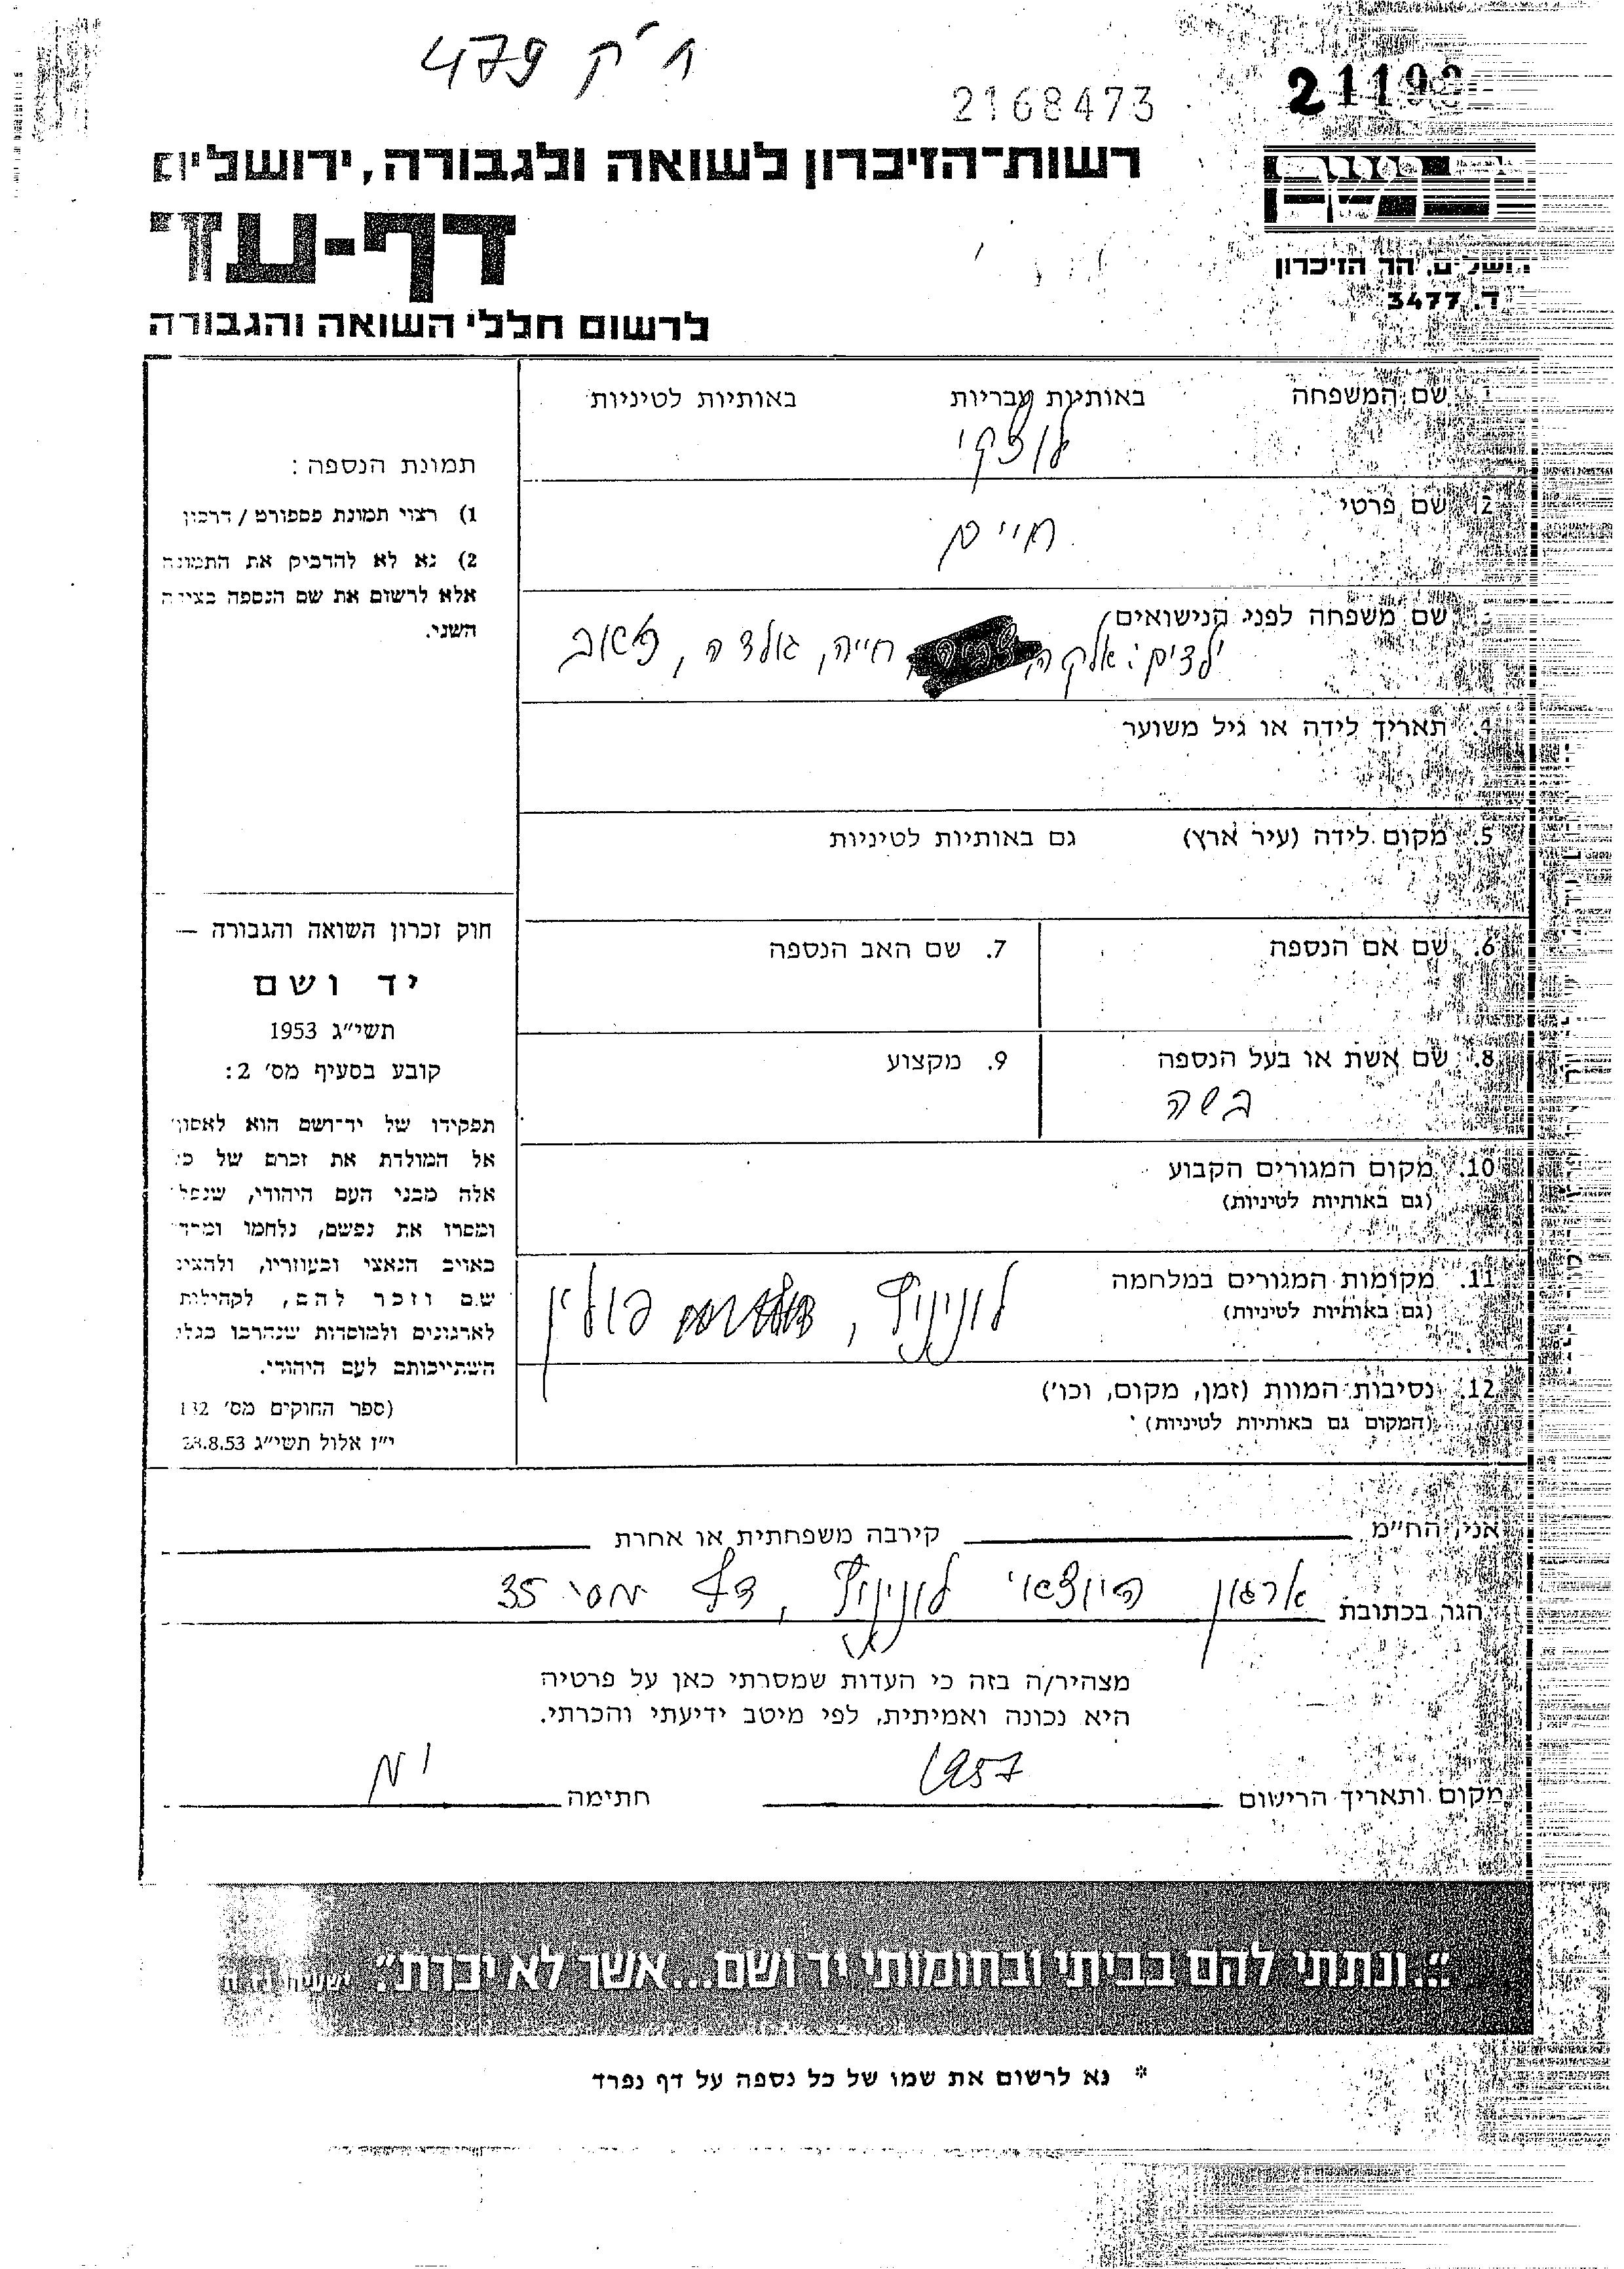 ח״ק 479
2168473
רשות־הזיכרון לשואה ולגבורה, ירושלים
דף-עד
לרשום חללי השואה והגבורה
ירושלים, הר הזיכרון
ת.ד. 3477
שם המשפחה באותיות עבריות באותיות לטיניות
לוצקי
2. שם פרטי
חיים
שם משפחה לפני הנישואים
ילדים: אלקה חייה, גולדה,
4. תאריך לידה או גיל משוער
5. מקום לידה (עיר ארץ) גם באותיות לטיניות
6. שם אם הנספה 7. שם האב הנספה
8. שם אשת או בעל הנספה 9. מקצוע
בשה
10. מקום המגורים הקבוע
(גם באותיות לטיניות)
11. מקומות המגורים במלחמה
(גם באותיות לטיניות)
לונינץ, פולין
12. נסיבות המוות (זמן, מקום, וכו׳)
(המקום גם באותיות לטיניות)
תמונת הנספה:
1) רצוי תמונת פספורט/דרכון
2) נא לא להדביק את התמונה
אלא לרשום את שם הנספה בצידה
השני.
חוק זכרון השואה והגבורה —
יד ושם
תשי״ג 1953
קובע בסעיף מס׳ 2:
תפקידו של יד־ושם הוא לאסוף
אל המולדת את זכרם של כל
אלה מבני העם היהודי, שנפלו
ומסרו את נפשם, נלחמו ומרדו
באויב הנאצי ובעוזריו, ולהציב
שם וזכר להם, לקהילות
לארגונים ולמוסדות שנהרבו בגלל
השתייכותם לעם היהודי.
(ספר החוקים מס׳ 132
י״ז אלול תשי״ג 28.8.53
אני, הח״מ קירבה משפחתית או אחרת
הגר בכתובת ארגון היוצאי לונינץ, דף מס׳ 35
מצהיר/ה בזה כי העדות שמסרתי כאן על פרטיה
היא נכונה ואמיתית, לפי מיטב ידיעתי והכרתי.
מקום ותאריך הרישום 1957 חתימה
״...ונתתי להם בביתי ובחומותי יד ושם...אשר לא יכרת״. ישעיהו נו, ה
* נא לרשום את שמו של כל נספה על דף נפרד